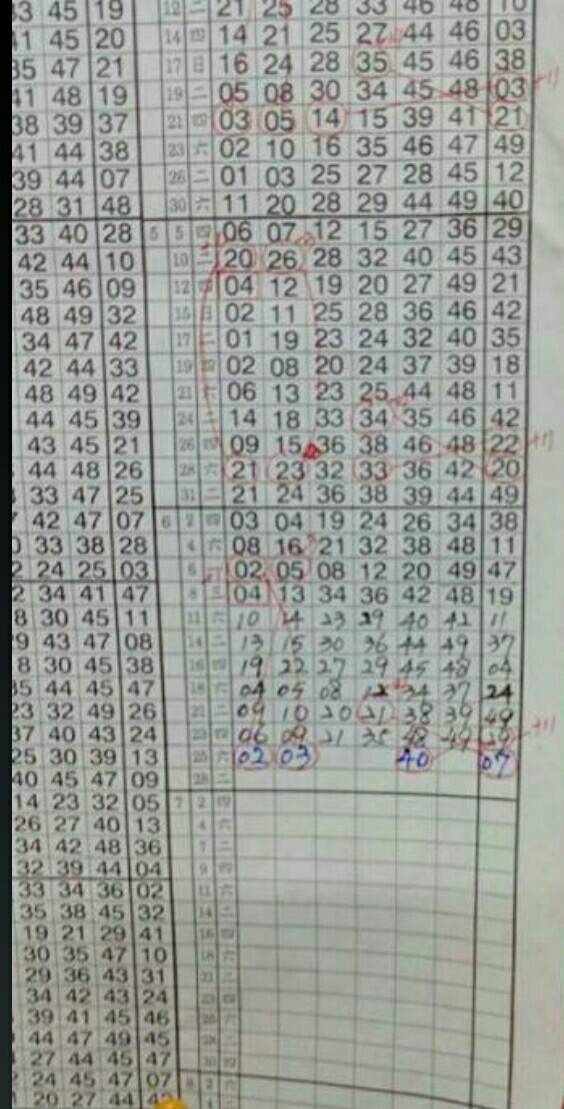 33 45 19 12 二 21 25 28 33 46 48 10
41 45 20 14 四 14 21 25 27 44 46 03
35 47 21 17 日 16 24 28 35 45 46 38
41 48 19 19 二 05 08 30 34 45 48 03 +11
38 39 37 21 四 03 05 14 15 39 41 21
41 44 38 23 六 02 10 16 35 46 47 49
39 44 07 26 二 01 03 25 27 28 45 12
28 31 48 30 六 11 20 28 29 44 49 40
33 40 28 5 5 四 06 07 12 15 27 36 29
42 44 10 10 二 20 26 28 32 40 45 43
35 46 09 12 四 04 12 19 20 27 49 21
48 49 32 15 日 02 11 25 28 36 46 42
34 47 42 17 二 01 19 23 24 32 40 35
42 44 33 19 四 02 08 20 24 37 39 18
48 49 42 21 六 06 13 23 25 44 48 11
44 45 39 24 二 14 18 33 34 35 46 42
43 45 21 26 四 09 15 36 38 46 48 22 +11
44 48 26 28 六 21 23 32 33 36 42 20
33 47 25 31 二 21 24 36 38 39 44 49
42 47 07 6 2 四 03 04 19 24 26 34 38
33 38 28 4 六 08 16 21 32 38 48 11
24 25 03 6 02 05 08 12 20 49 47
34 41 47 8 三 04 13 34 36 42 48 19
8 30 45 11 11 六 10 14 23 29 40 42 11
29 43 47 08 14 二 13 15 30 36 44 49 37
8 30 45 38 16 四 19 22 27 29 45 48 04
35 44 45 47 18 六 04 05 08 12 34 37 24
23 32 49 26 21 二 09 10 20 21 38 39 49
37 40 43 24 23 四 06 09 21 35 48 49 +11
25 30 39 13 25 六 02 03 40 07
40 45 47 09 28 二
14 23 32 05 7 2 四
26 27 40 13 4 六
34 42 48 36 7 二
32 39 44 04 9 四
33 34 36 02 11 六
35 38 45 32 14 二
19 21 29 41 16 四
30 35 47 10 18 六
29 36 43 31 21 二
34 42 43 24 23 四
39 41 45 46 六
44 47 49 45 28 二
27 44 45 47 30 四
24 45 47 07 8 2 六
20 27 44